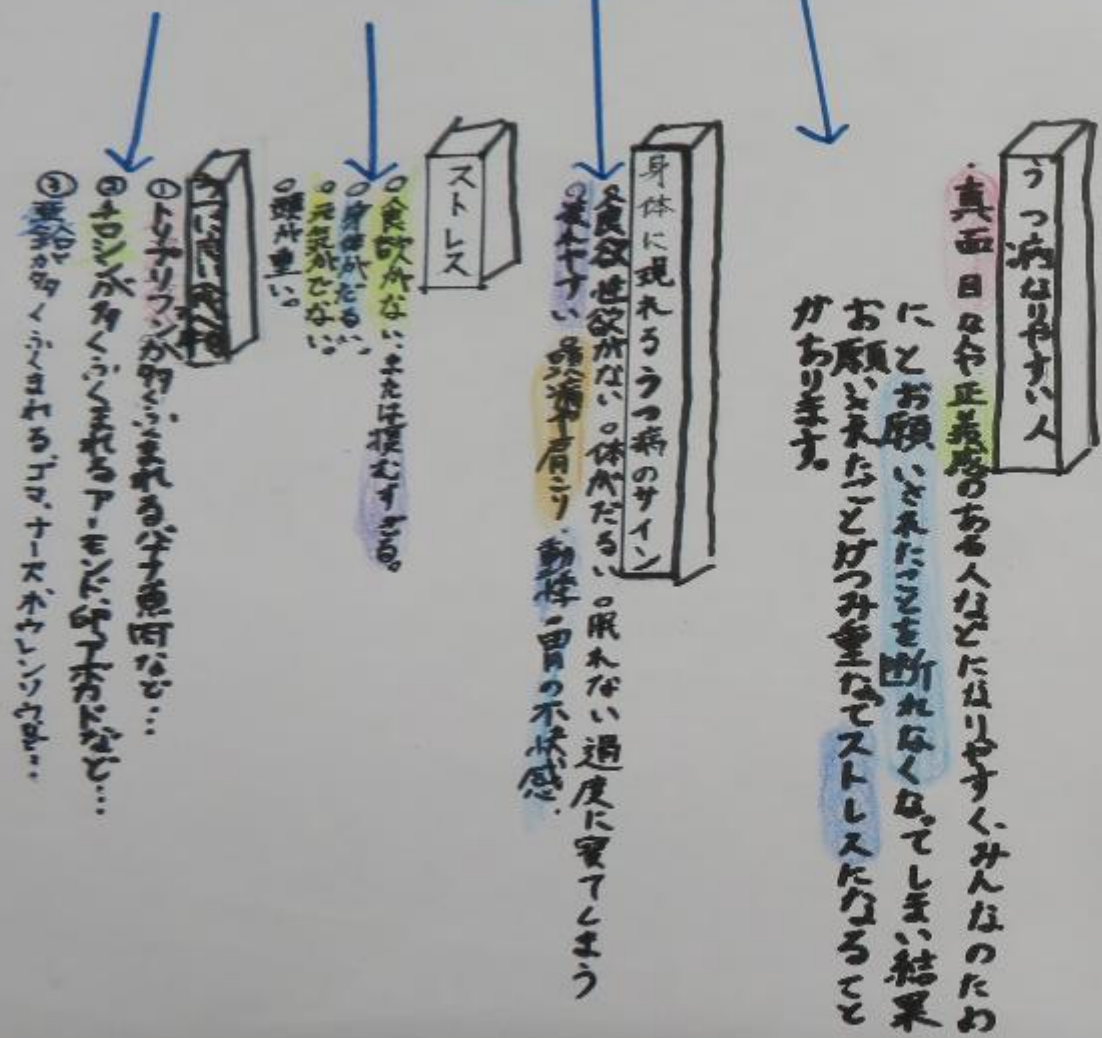 うつ病なりやすい人
・真面目なや正義感のある人などになりやすく、みんなのため
にとお願いされたことを断れなくなってしまい結果
お願いされたことがつみ重なてストレスになるてと
があります。
身体に現れるうつ病のサイン
○食欲性欲がない○体がだるい○眠れない過度に寝てしまう
○疲れやすい 頭痛や肩こり、動悸○胃の不快感.
ストレス
○食欲がない、または摂むすぎる。
○身体がだるい。
○元気がでない。
○頭が重い。
うつに良い食べ物
①トリプリファンが多くふくまれるバナナ魚肉など…
②チロシンが多くふくまれるアーモンド、卵アボカドなど…
③亜鉛が多くふくまれる、ゴマ、ナーズホウレンソウ